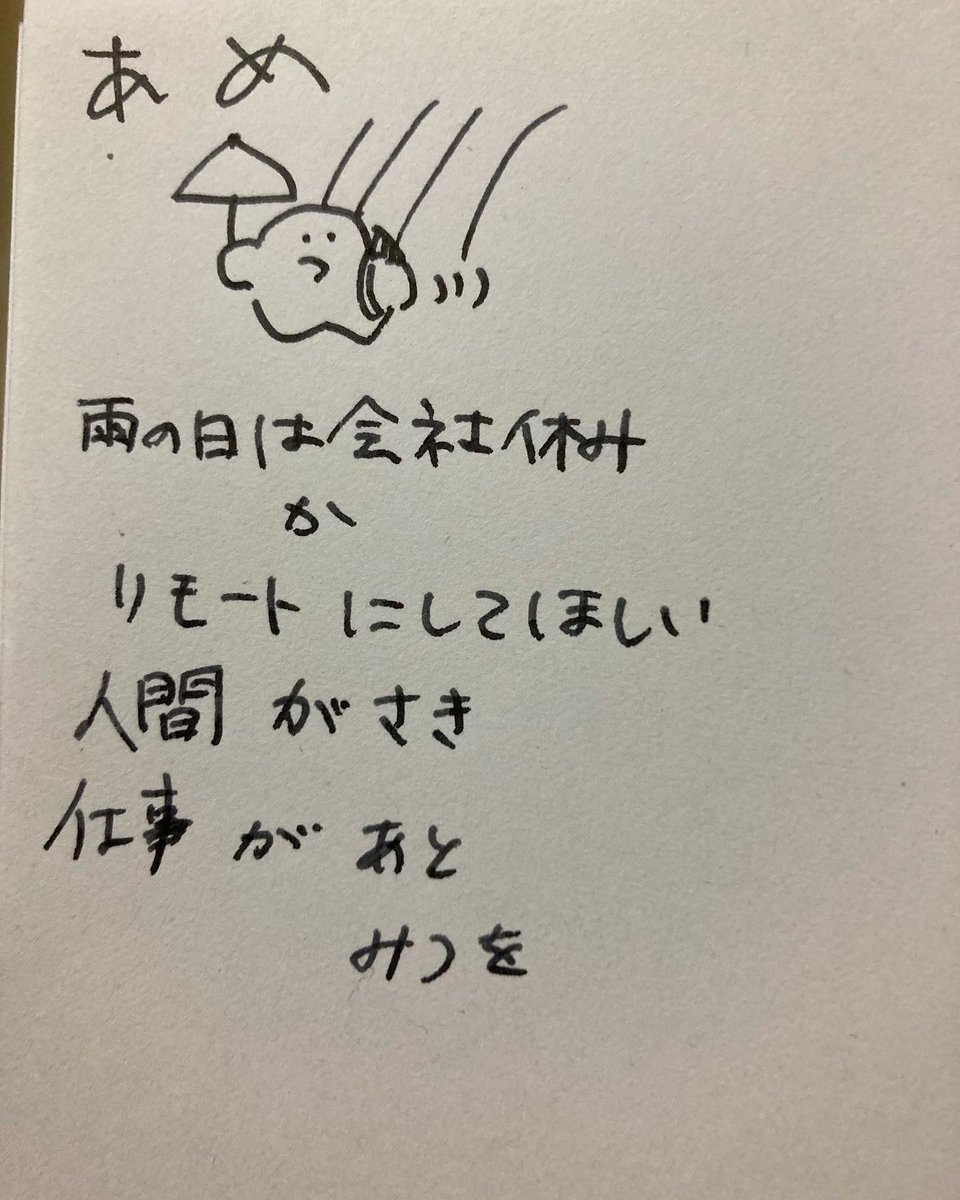 あめ
雨の日は会社休み
か
リモートにしてほしい
人間がさき
仕事があと
みつを